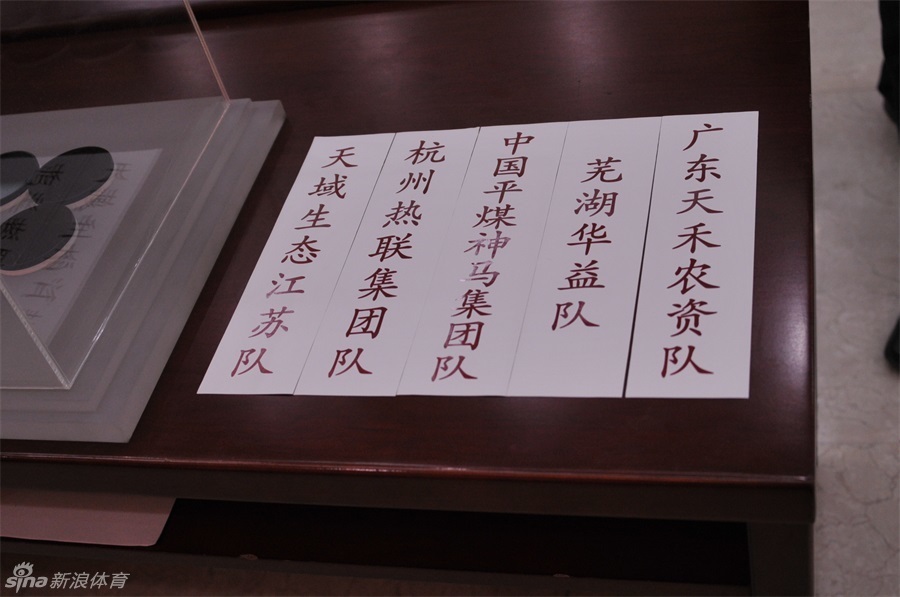 天域生态江苏队
杭州热联集团队
中国平煤神马集团队
芜湖华益队
广东天禾农资队
sina新浪体育